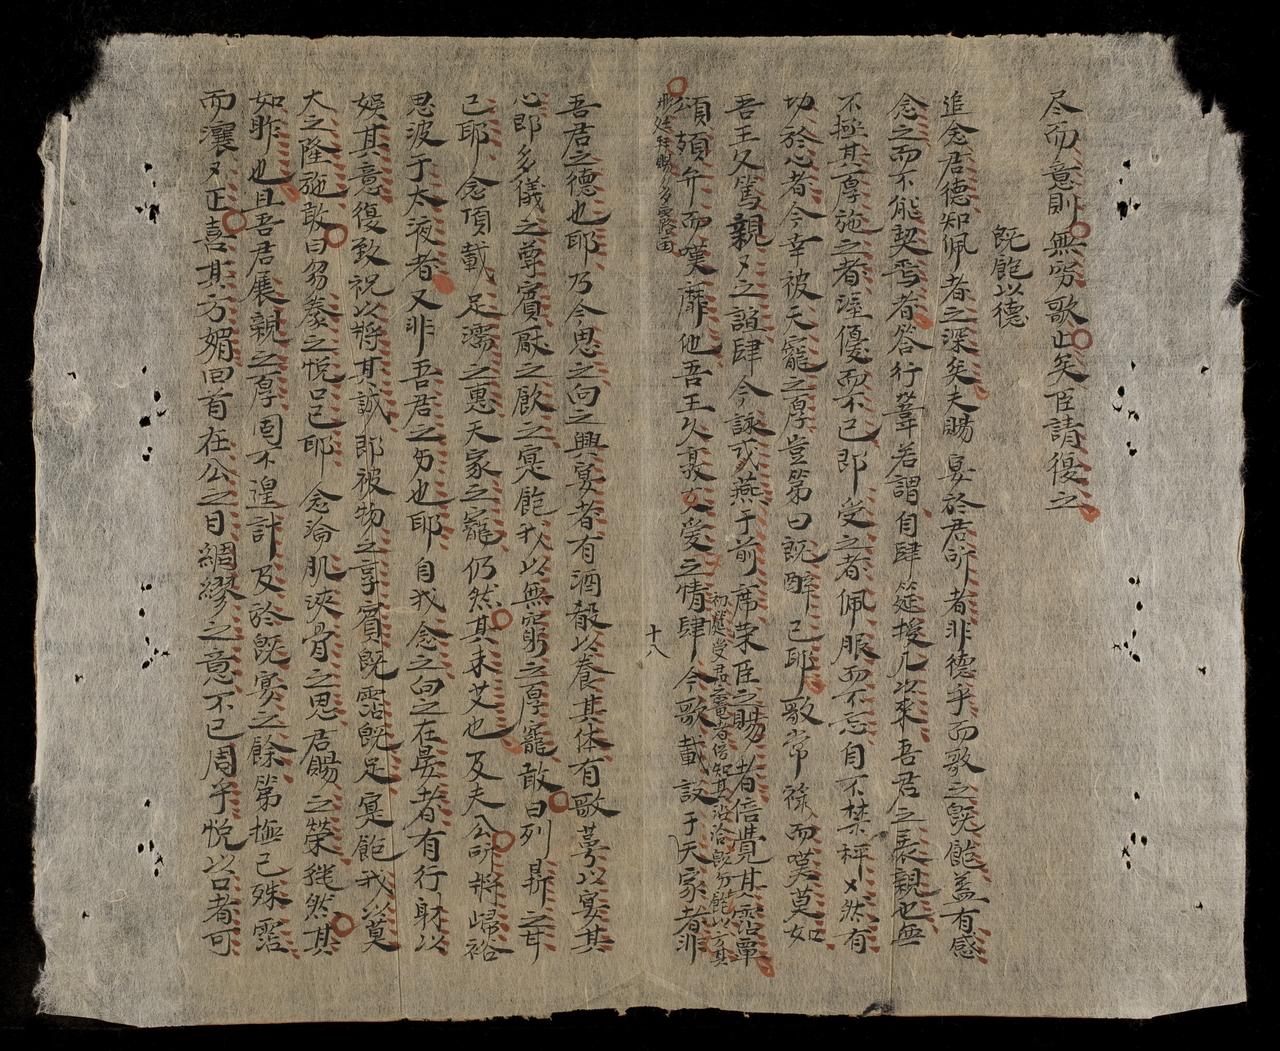 尽而意則無窮歌止矣臣請復之
既飽以德
追念君德知佩者之深矣夫賜宴於君所者非德乎而歌之既飽蓋有感
念之而不能契焉者答行葦若謂自肆筵授几以來吾君之展親也無
不極其厚施之者渥優而不已即受之者佩服而不忘自不禁秤々然有
切於心者今幸被天寵之厚豈第曰既醉已耶歌常祿而嘆莫如
吾王久篤親々之誼肆今詠式燕于前席荣臣之賜者倍覺其霑單
頌頍弁而嘆靡他吾王久敦友爱之情肆今歌載設于天家者非
十八
吾君之德也耶乃今思之向之興宴者有酒殽以養其体有歌萼以宴其
心即多儀之尊賓厭之飫之寔飽我以無窮之厚寵敢曰列鼎之甘
已耶念頂載足濡之惠天家之寵仍然其未艾也及夫公所將歸裕
思波于太液者又非吾君之力也耶自我念之向之在晏者有行財以
娱其意復致祝以將其誠即被物之享賓既霑既足寔飽我以莫
大之隆施敢曰芻豢之悅口已耶念淪肌浹骨之思君賜之荣継然其
如昨也且吾君展親之厚固不遑計及於既宴之餘第撫已殊霑
而瀼々正喜其方媚回首在公之日綢繆之意不已周乎悅以口者可